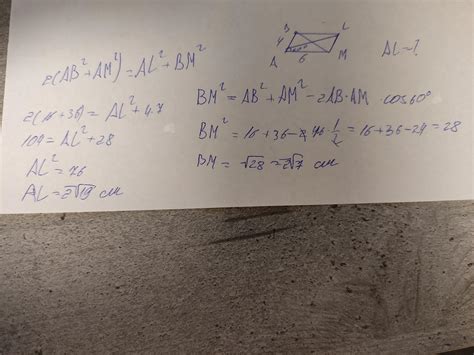 2(AB²+AM²)=AL²+BM²
2(16+36)=AL²+4·7
104=AL²+28
AL²=76
AL=2√19 см
B L
4
A 6 M
60°
AL-?
BM²=AB²+AM²-2AB·AM·cos60°
BM²=16+36-2·4·6·1/2=16+36-24=28
BM=√28=2√7 см